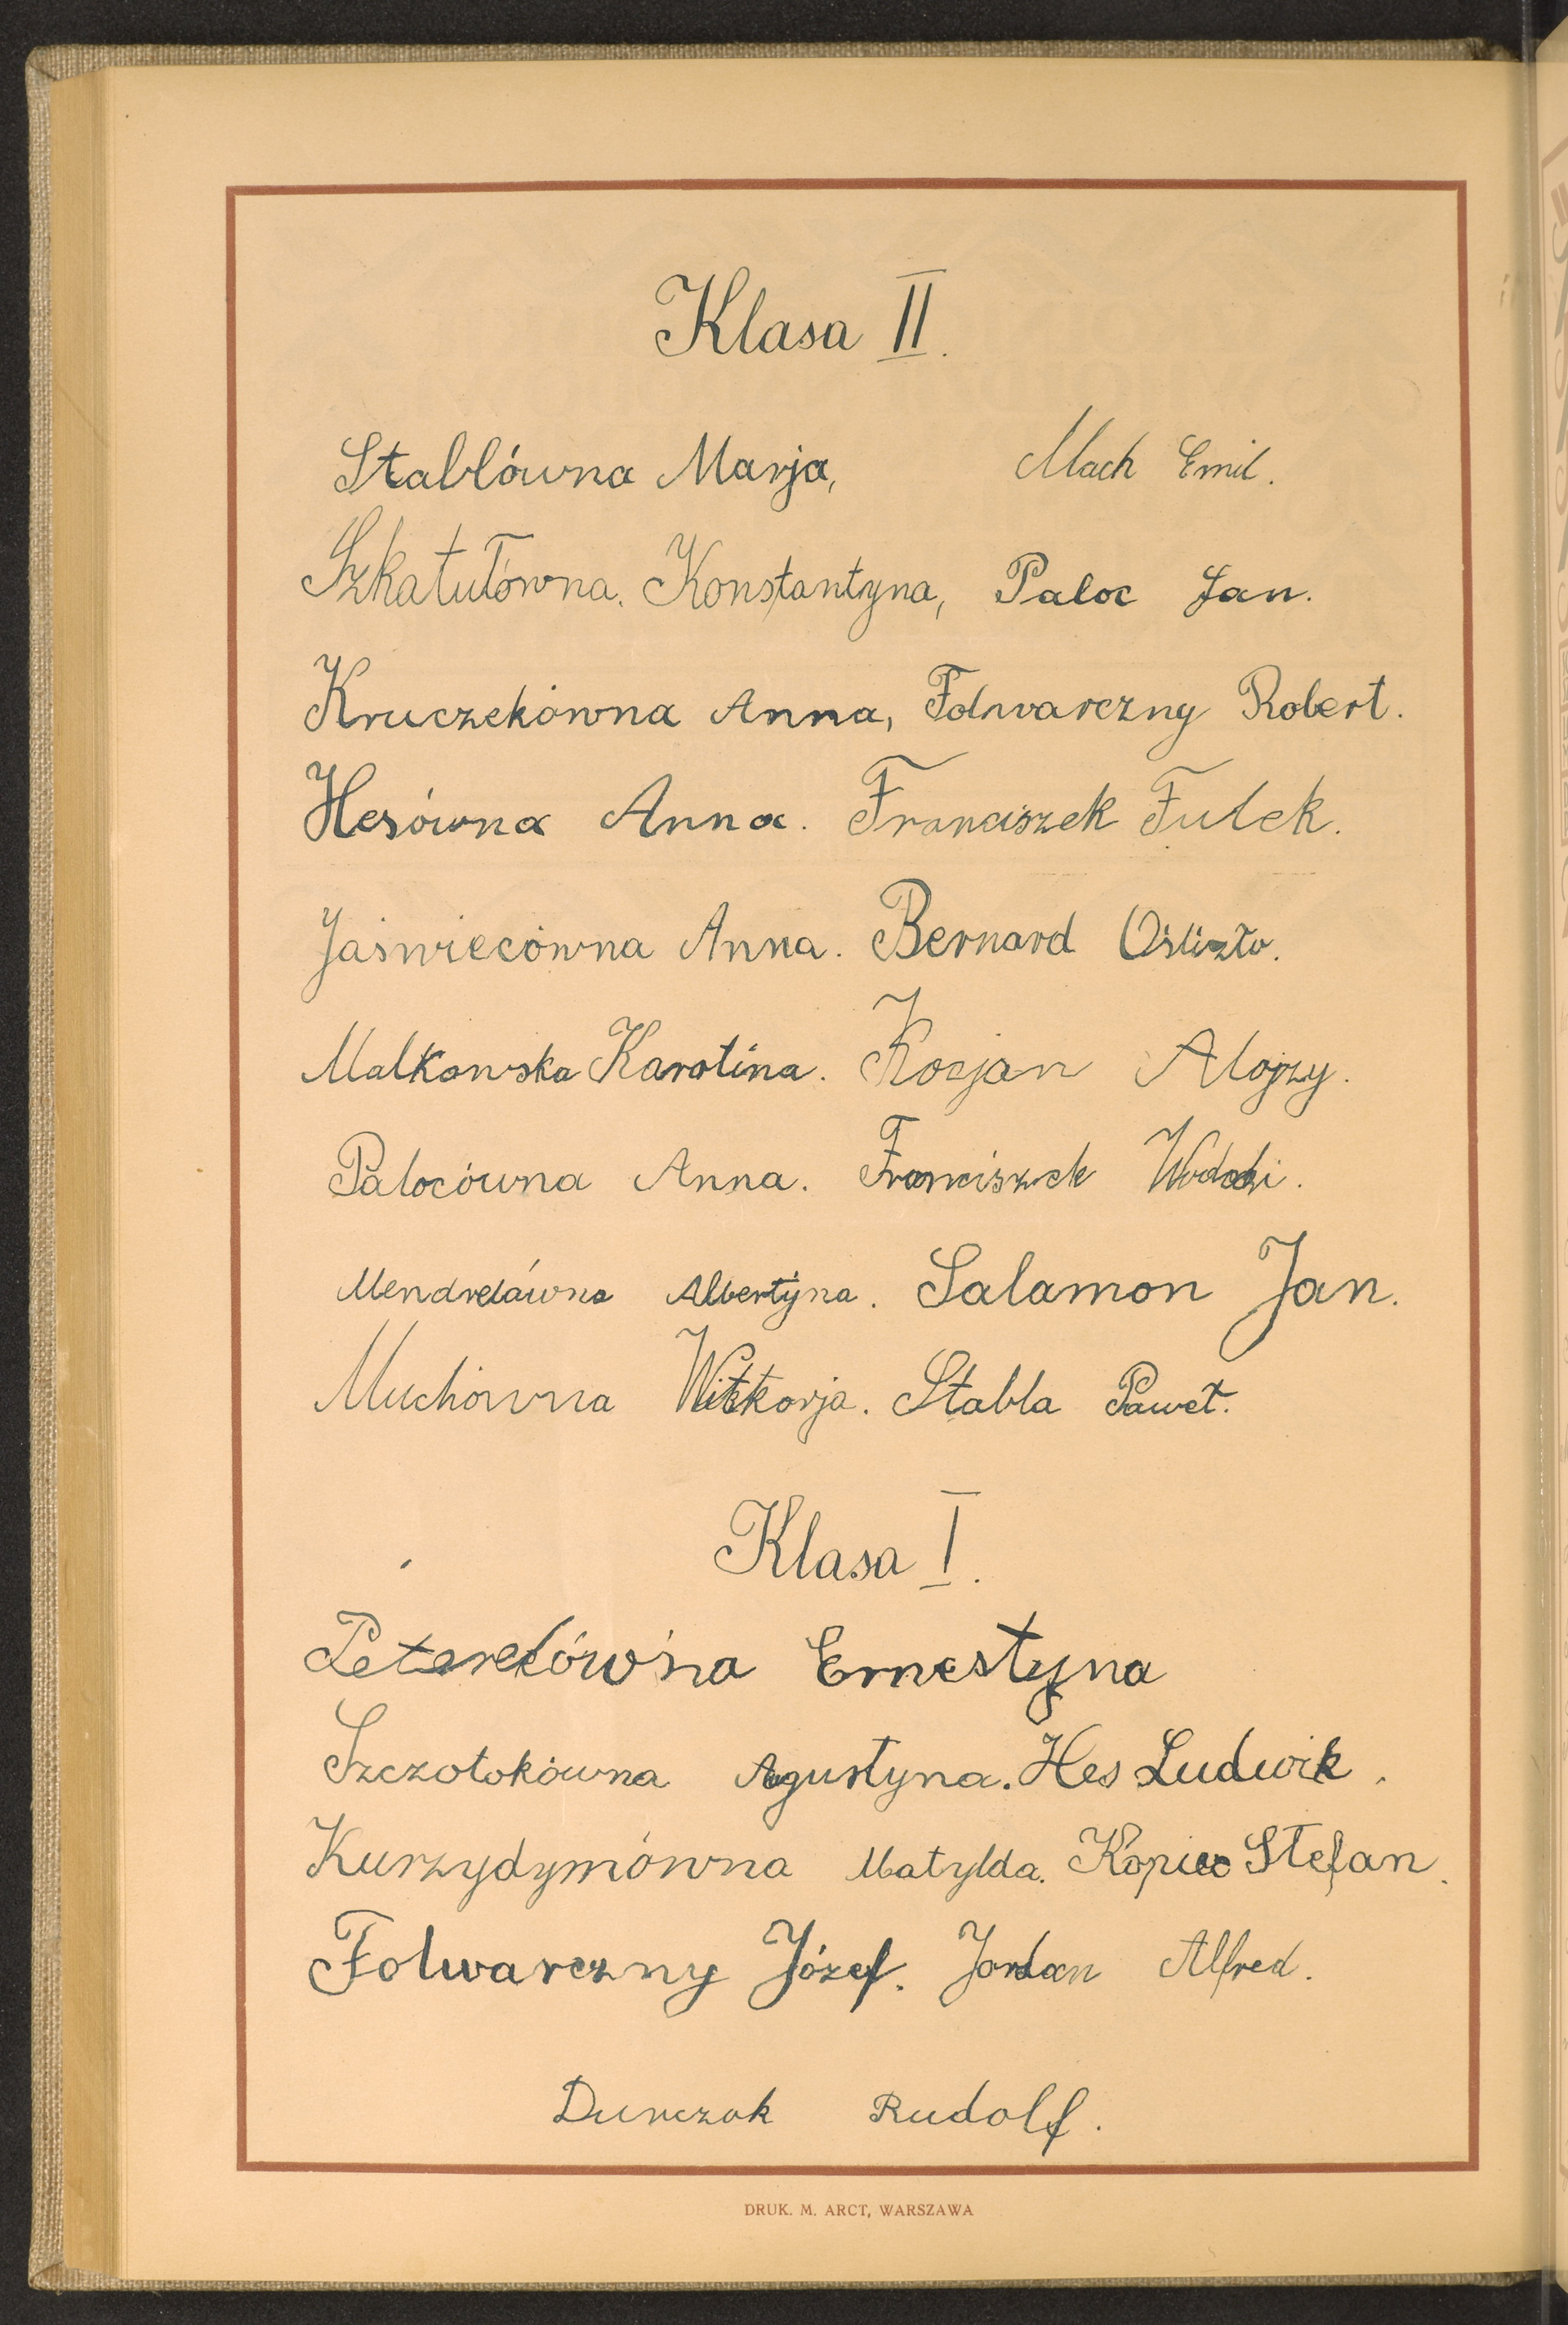 Klasa II.
Stablówna Marja, Mach Emil.
Szkatułówna. Konstantyna, Paloc Jan.
Kruczekówna Anna, Folwarczny Robert.
Hesówna Anna. Franciszek Fulek.
Jaświecówna Anna. Bernard Oślizło.
Malkowska Karolina. Kosjan Alojzy.
Palocówna Anna. Franciszek
Mendrelówna Albertyna. Salamon Jan.
Muchówna Wiktorja. Stabla Paweł.
Klasa I.
Peterelówna Ernestyna
Szczotokówna Agustyna. Hes Ludwik.
Kurzydymówna Matylda. Kopiec Stefan.
Folwarczny Józef. Jordan Alfred.
Durczok Rudolf.
DRUK. M. ARCT, WARSZAWA